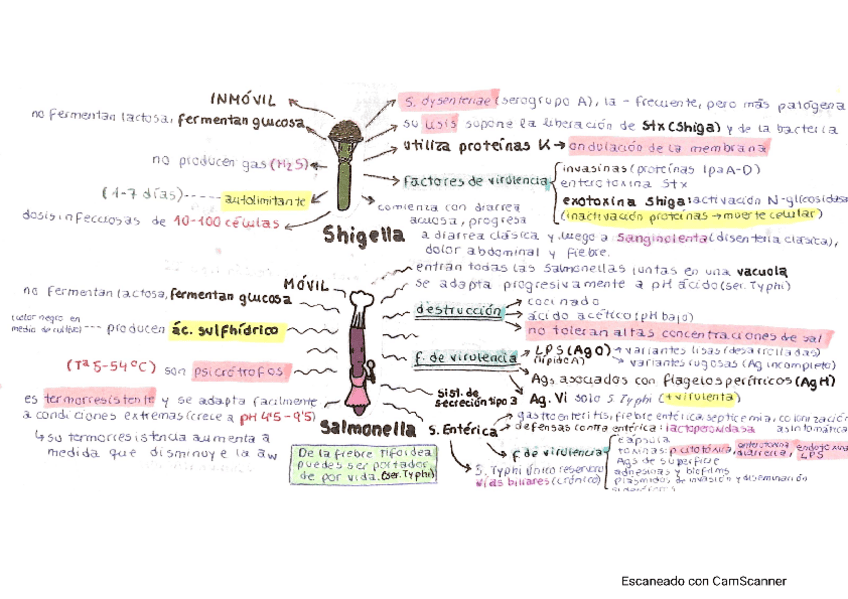 INMÓVIL
no fermentan lactosa, fermentan glucosa
no producen gas (H₂S)
(1-7 días) ----- autolimitante
dosis infecciosas de 10-100 células
Shigella
S. dysenteriae (serogrupo A), la - frecuente, pero más patógena
su lisis supone la liberación de Stx (Shiga) y de la bacteria
utiliza proteínas K → ondulación de la membrana
factores de virulencia
invasinas (proteínas IpaA-D)
enterotoxina Stx
exotoxina Shiga: activación N-glicosidasa
(inactivación proteínas → muerte celular)
comienza con diarrea
acuosa, progresa
a diarrea clásica y luego a sanginolenta (disentería clásica),
dolor abdominal y fiebre.
MÓVIL
no fermentan lactosa, fermentan glucosa
color negro en
medio de cultivo --- producen ác. sulfhídrico
(Tª 5-54ºC) son psicrótrofos
es termorresistente y se adapta facilmente
a condiciones extremas (crece a pH 4'5-9'5)
↳ su termorresistencia aumenta a
medida que disminuye la aw
Salmonella
De la fiebre tifoidea
puedes ser portador
de por vida. (ser. Typhi)
entran todas las salmonellas juntas en una vacuola
se adapta progresivamente a pH ácido (ser. Typhi)
destrucción
cocinado
ácido acético (pH bajo)
no toleran altas concentraciones de sal
f. de virulencia
LPS (Ag O) → variantes lisas (desarrolladas)
(lípido A) ↘ variantes rugosas (Ag incompleto)
Ags asociados con flagelos perítricos (Ag H)
Ag. Vi solo S. Typhi (+ virulenta)
sist. de
secreción tipo 3
S. Entérica
gastroenteritis, fiebre entérica, septicemia, colonización
asintomática
defensas contra entérica: lactoperoxidasa
f de virulencia
cápsula
toxinas: citotoxina, enterotoxina diarreica, endotoxina LPS
Ags de superficie
adhesinas y biofilms
plásmidos de invasión y diseminación
sideróforos
S. Typhi único reservorio
vías biliares (crónico)
Escaneado con CamScanner